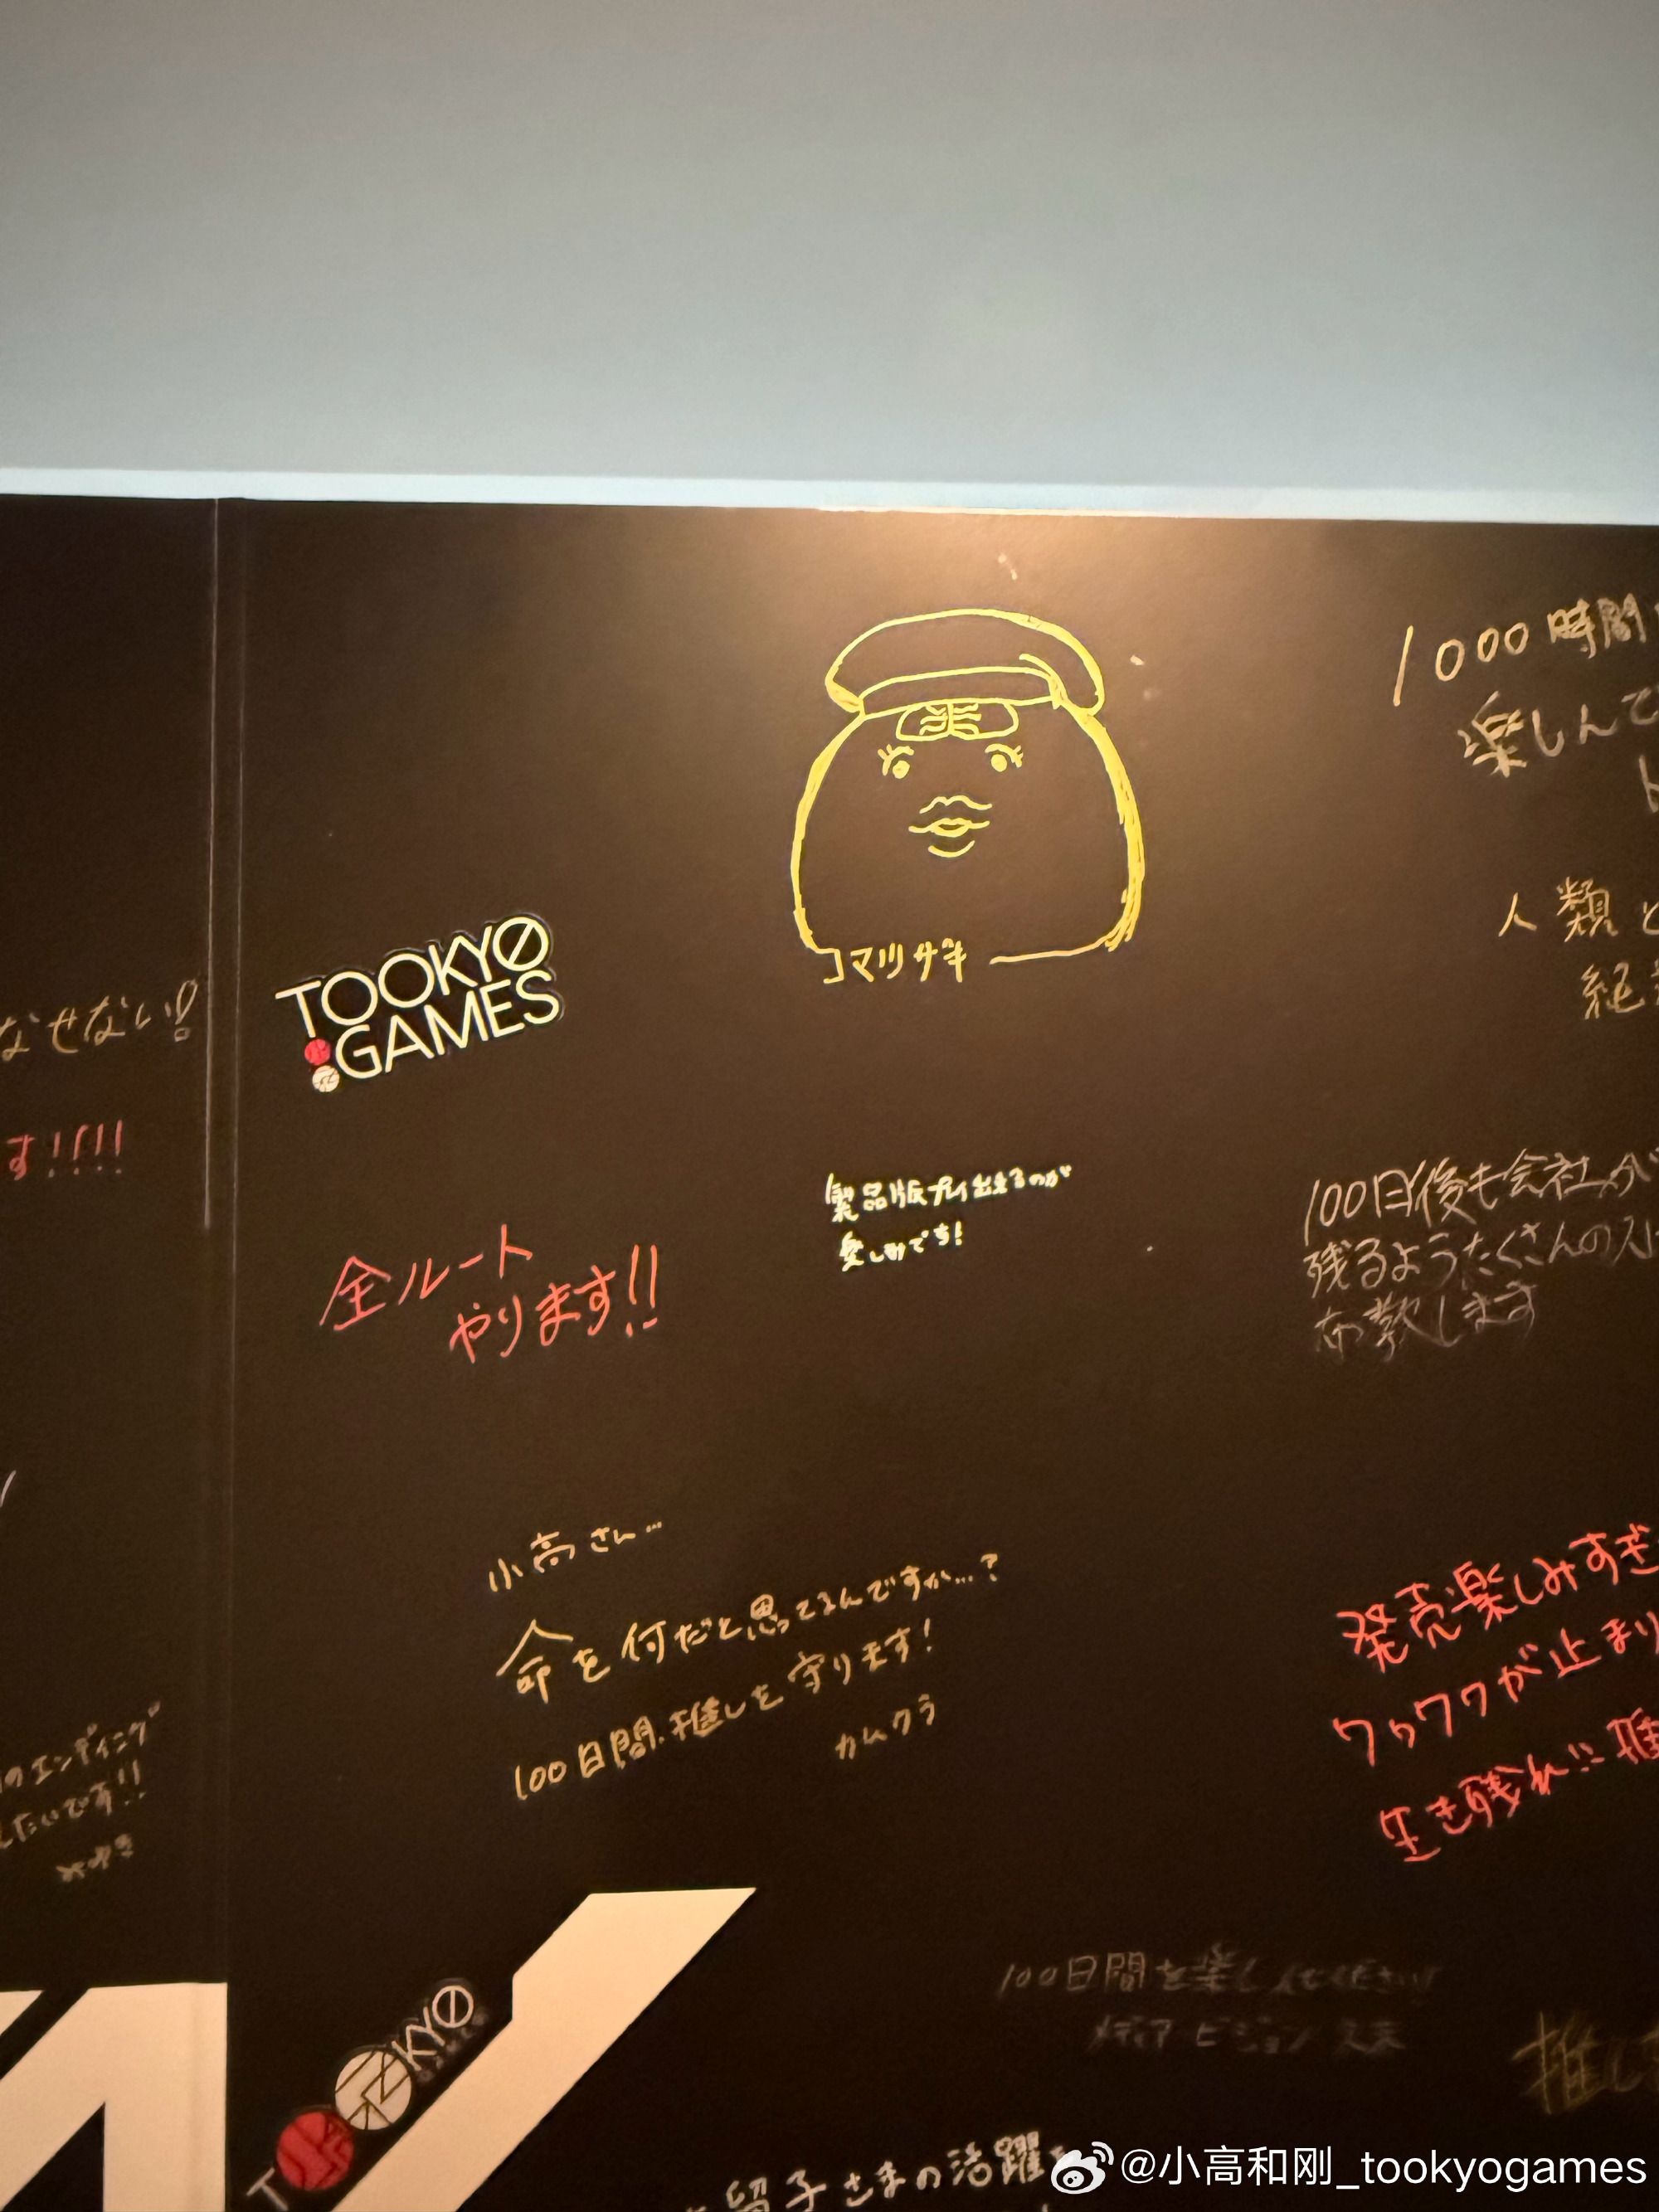 1000時間
楽しんで
コマツザキ
人類と
絶
TOOKYO
GAMES
なせない!
す!!!!
製品版プレイ出来るのが
楽しみです!
100日後も会社が
残るようたくさんの人に
布教します
全ルート
やります!!
小高さん…
命を何だと思ってるんですか…?
100日間、推しを守ります!
カムクラ
発売楽しみすぎ
ワクワクが止まり
生き残れ!!推
のエンディング
たいです!!
100日間を楽しんでください
メディアビジョン
推し
TOOKYO
留子さまの活躍
@小高和刚_tookyogames